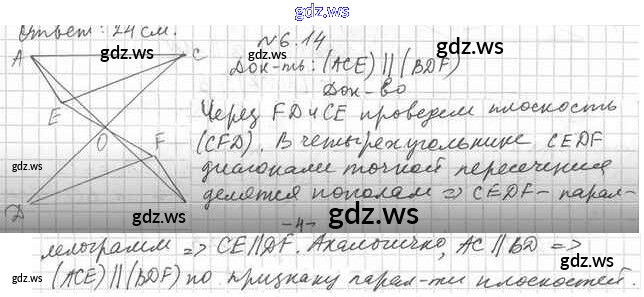 gdz.ws
Ответ: 24 см.
№6.14
gdz.ws gdz.ws
A C
Док-ть: (ACE) || (BDF)
Док-во
E
Через FD и CE проведем плоскость
O F
(CFD). В четырехугольнике CEDF
gdz.ws gdz.ws
диагонали точкой пересечения
делятся пополам => CEDF - парал-
D
gdz.ws gdz.ws
-4-
лелограмм => CE || DF. Аналогично, AC || BD =>
(ACE) || (BDF) по признаку парал-ти плоскостей.
gdz.ws gdz.ws